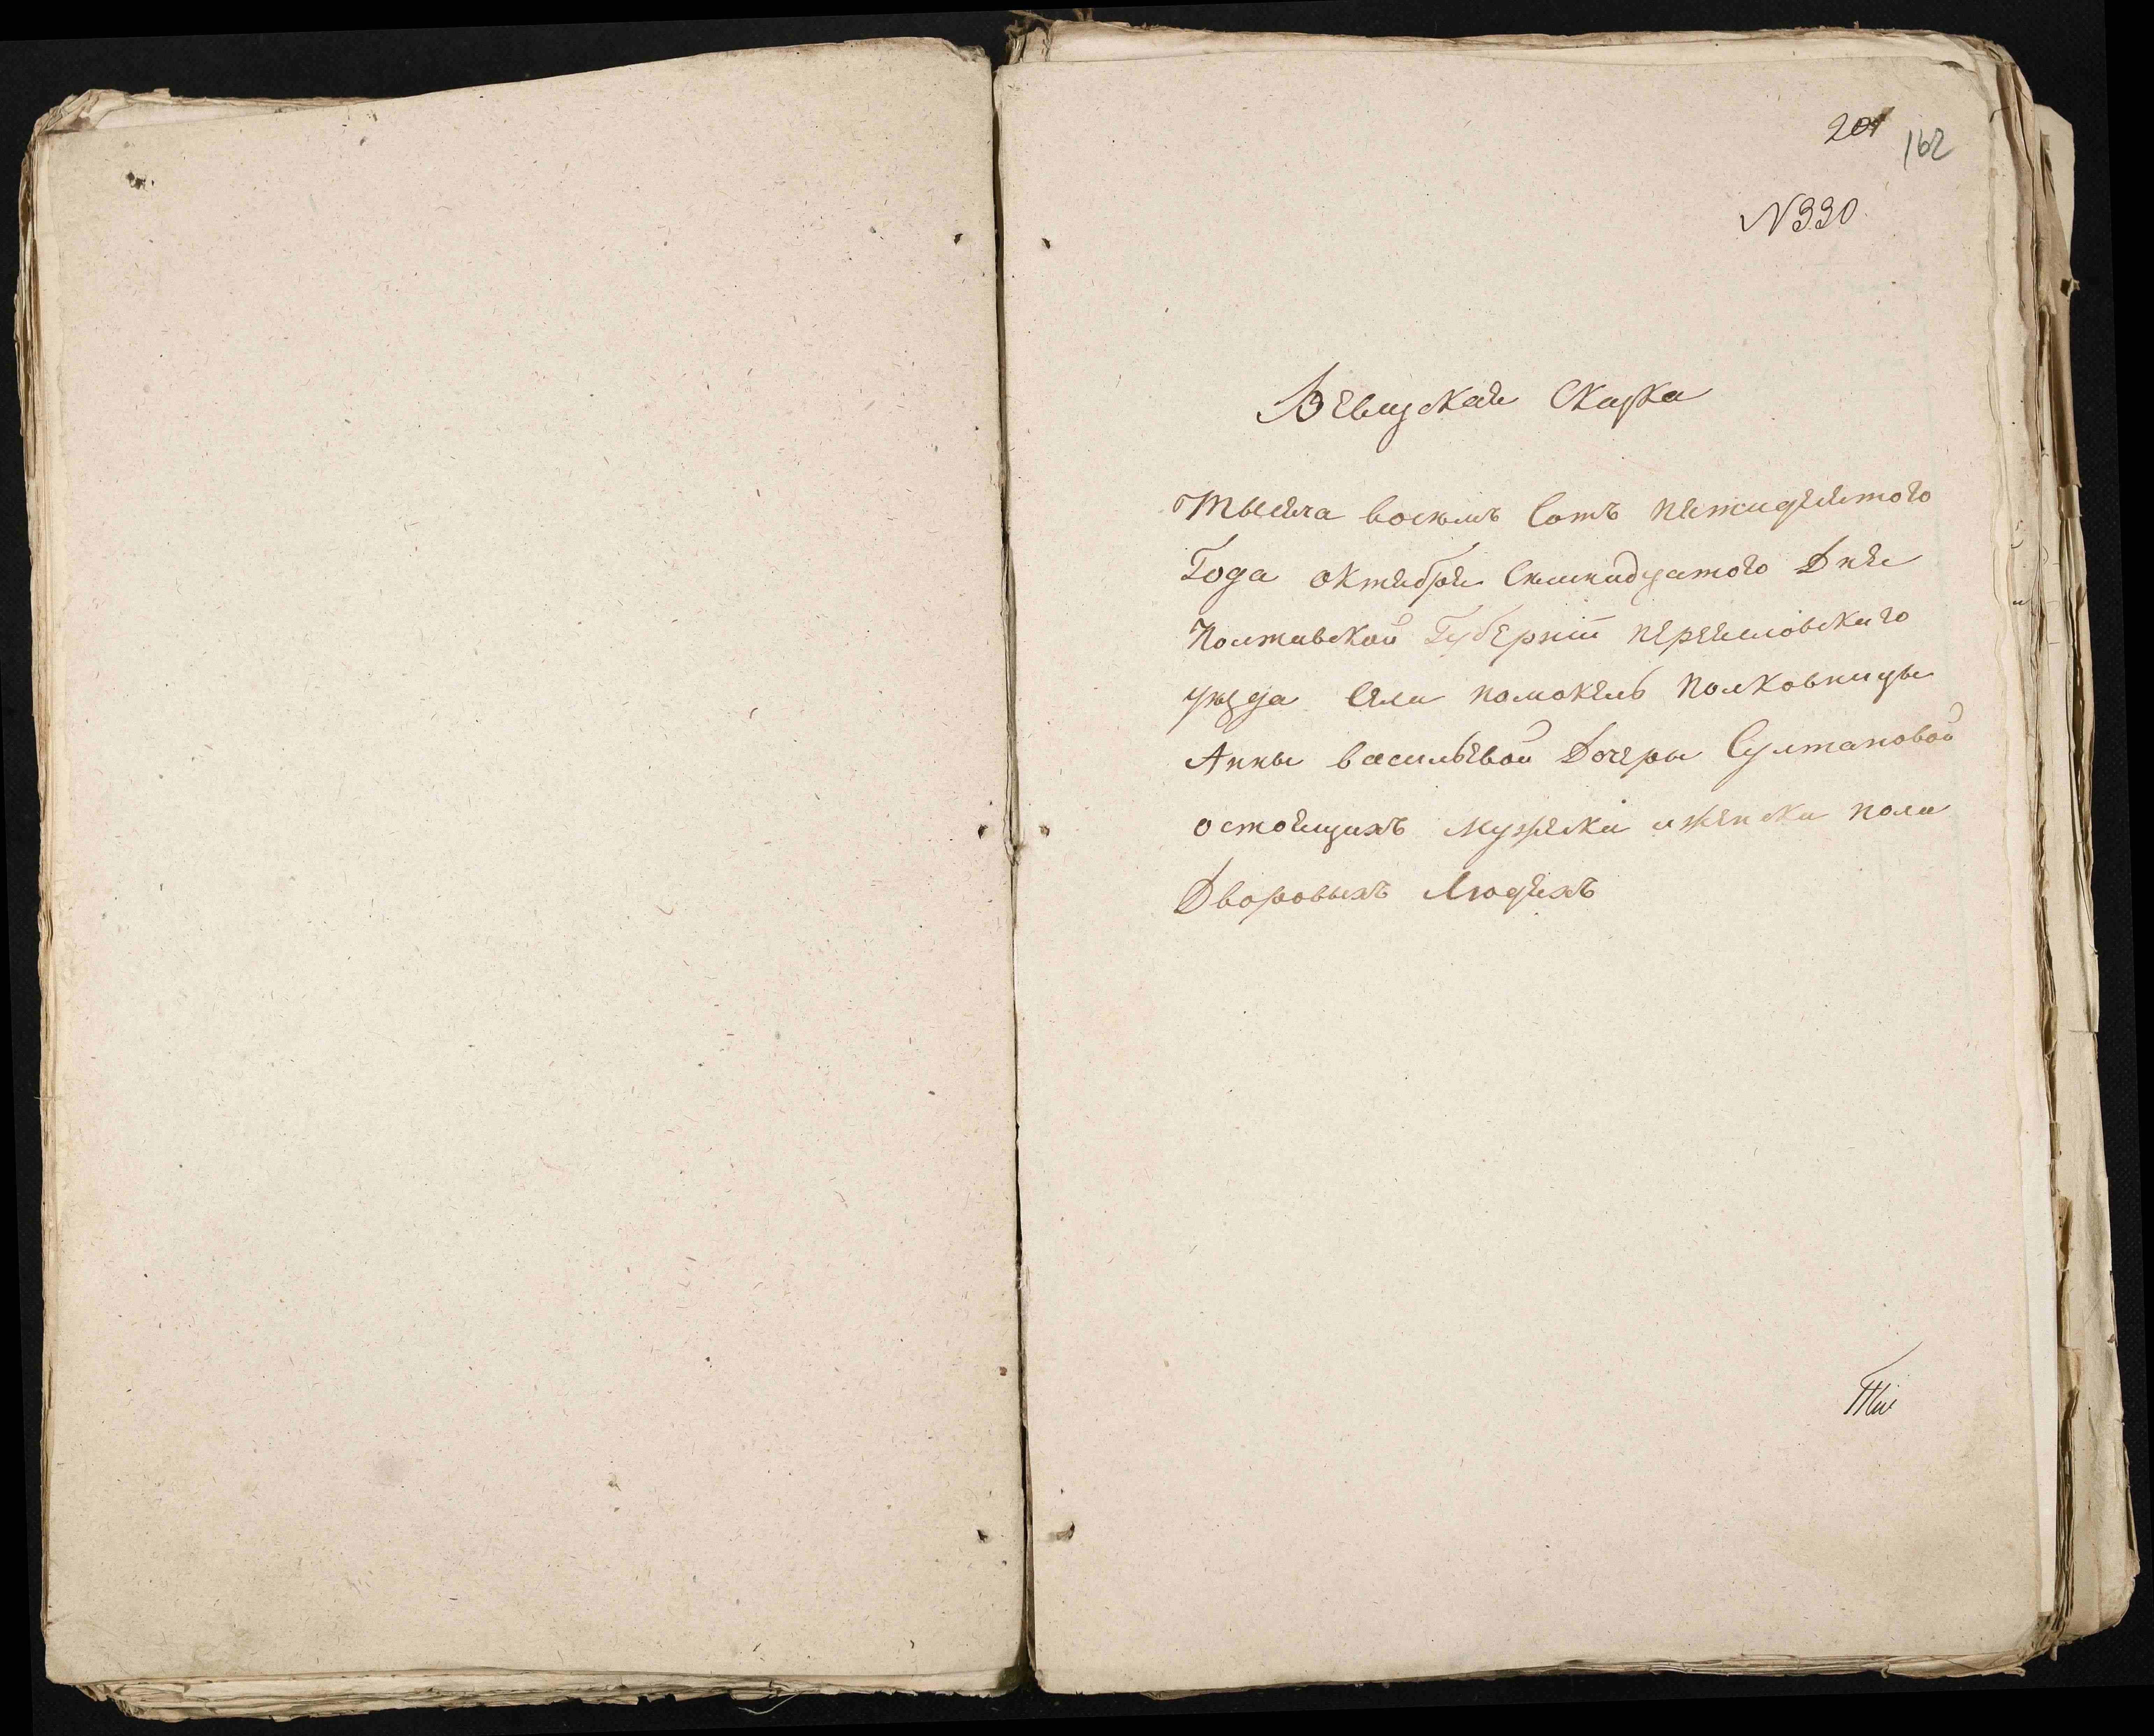 201
162
N 330.
Ревизская Сказка
Тысеча восемь Сотъ пятидесятого
Года октября Семнадцатого Дня
Полтавской Губерніи переясловского
уезда Села помокель Полковницы
Анны васильевой Дочери Султановой
о стоящихъ мужска и женска пола
Дворовыхъ Людяхъ